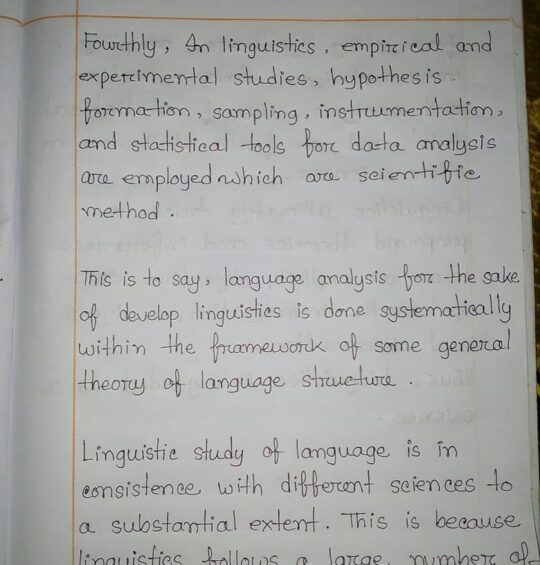 Fourthly, In linguistics, empirical and
experimental studies, hypothesis
formation, sampling, instrumentation,
and statistical tools for data analysis
are employed which are scientific
method.
This is to say, language analysis for the sake
of develop linguistics is done systematically
within the framework of some general
theory of language structure.
Linguistic study of language is in
consistence with different sciences to
a substantial extent. This is because
linguistics follows a large number of